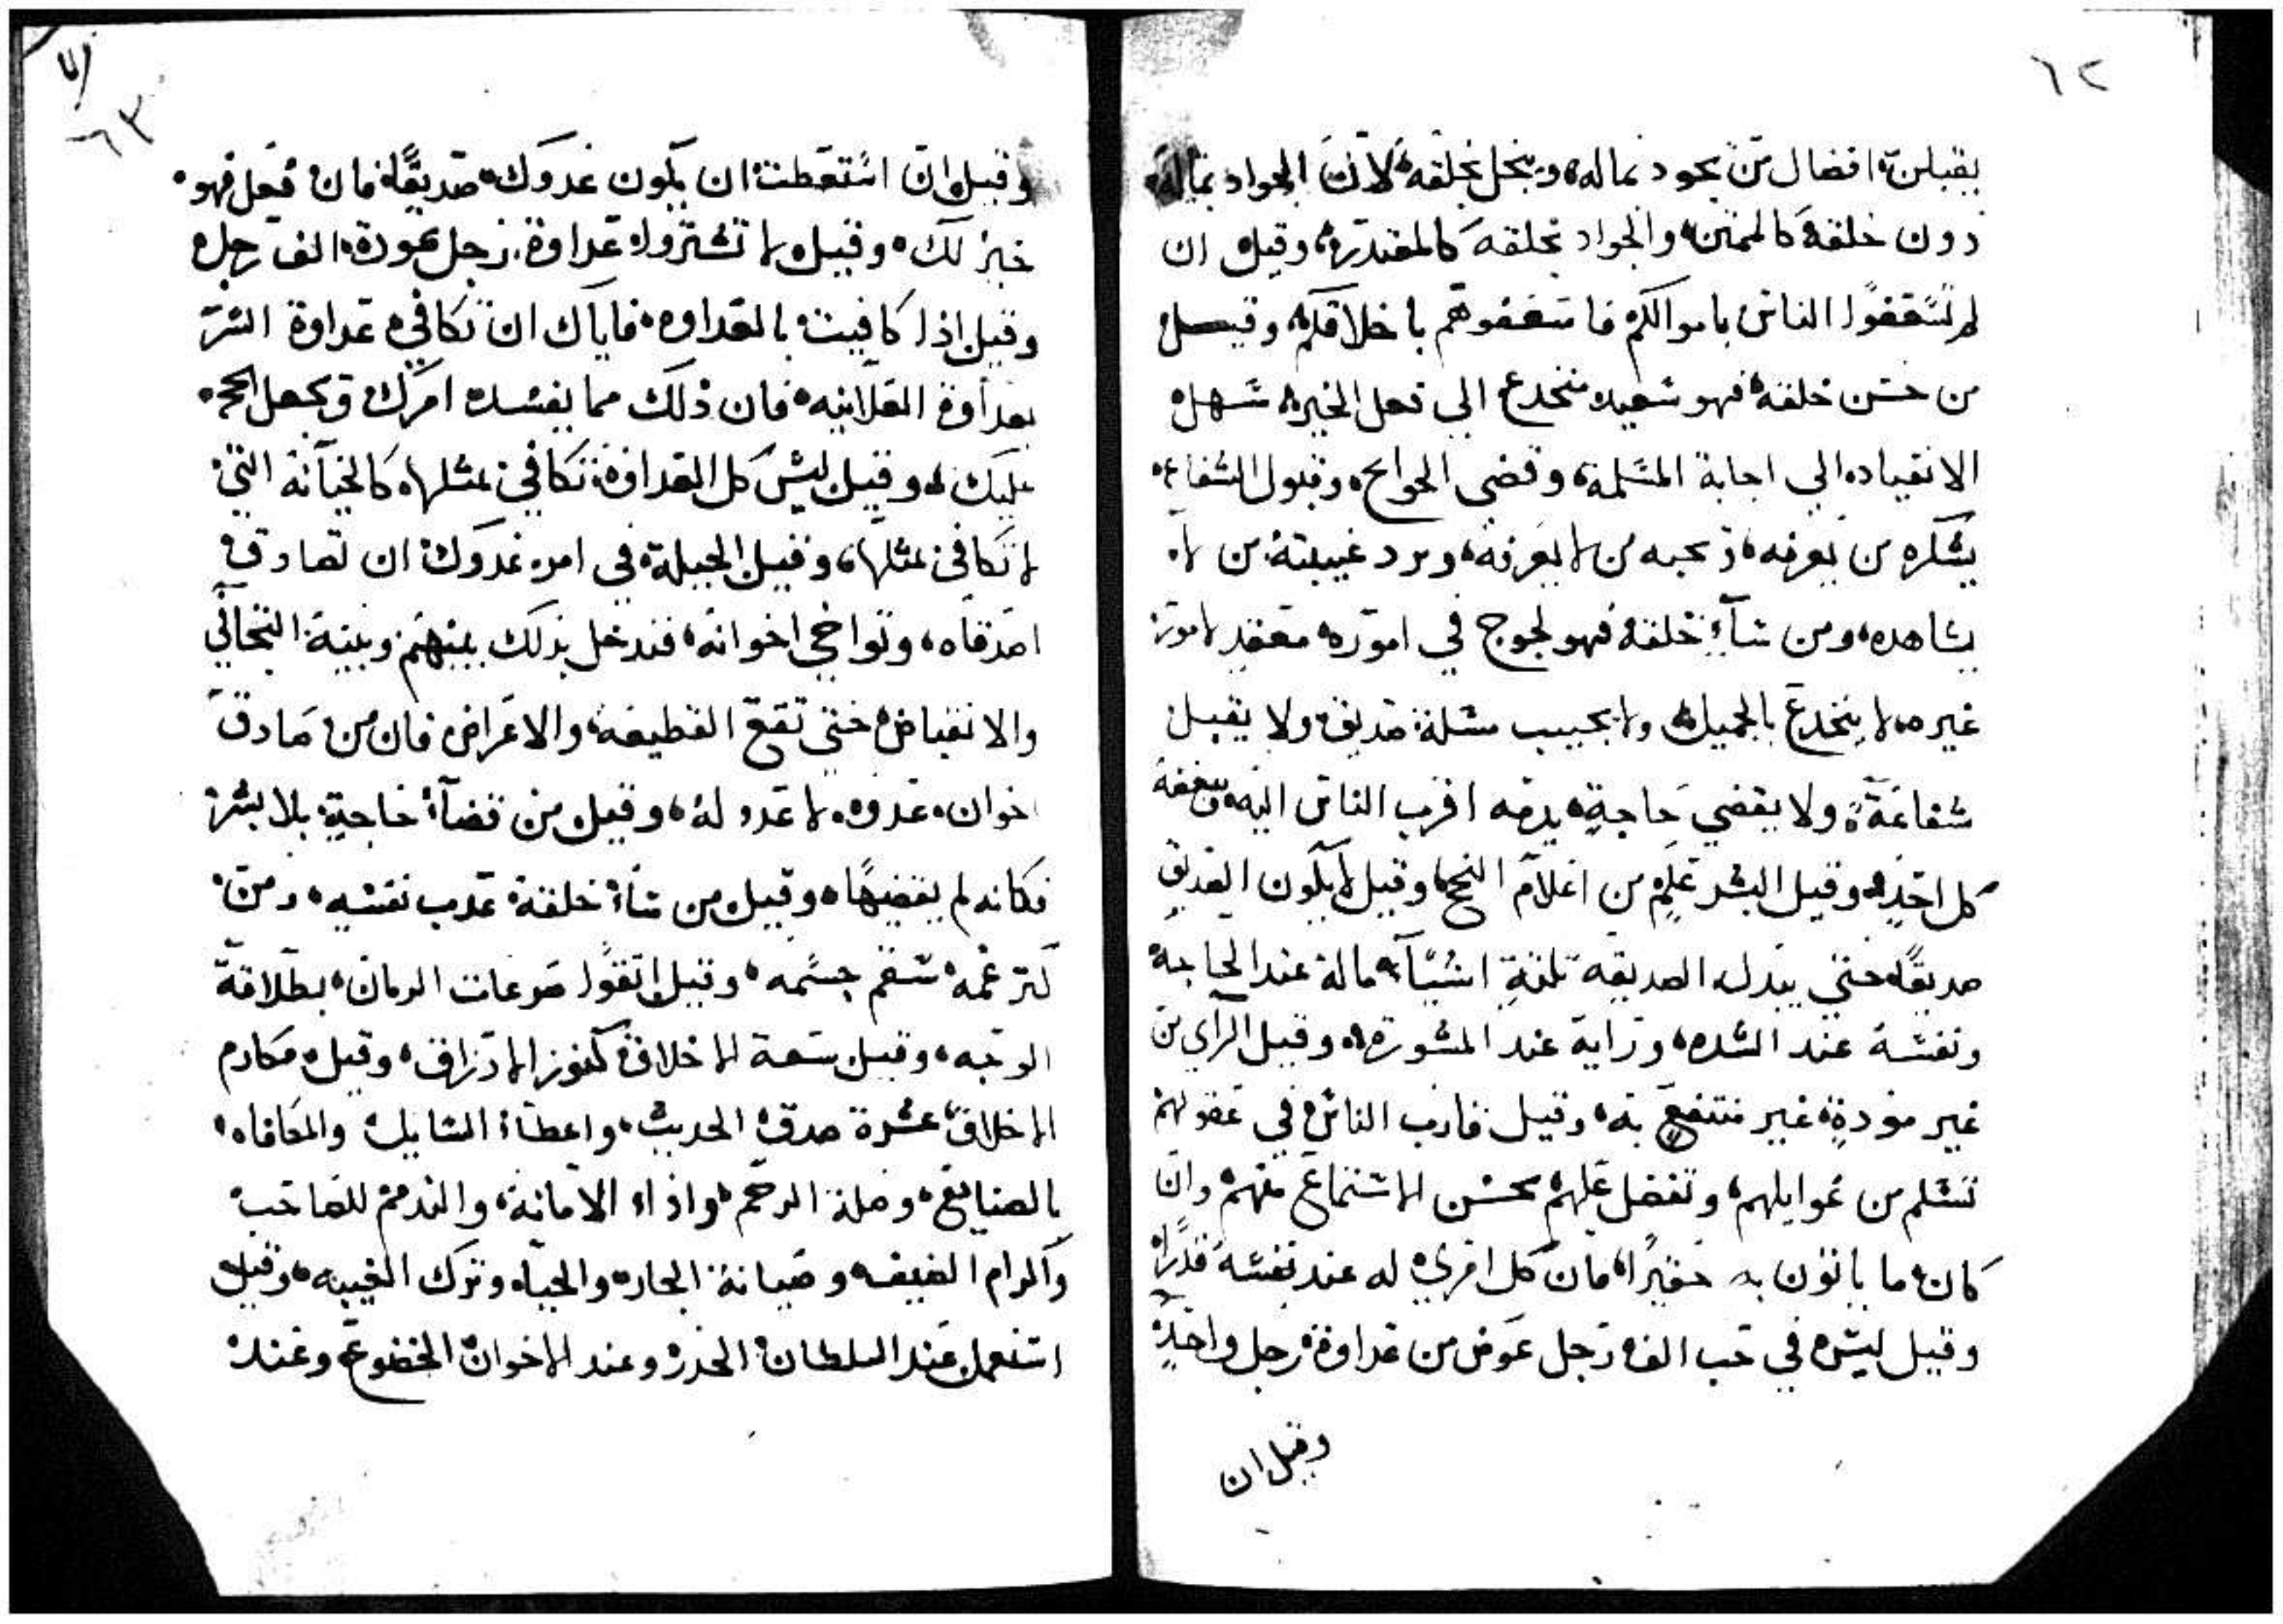 ٦٢
يقبلن افضال من يجود بماله ويبخل بخلقه لان الجواد بماله
دون خلقه كالممتن والجواد بخلقه كالمقتدر وقيل ان
لم تسعفوا الناس باموالكم فاسعفوهم باخلاقكم وقيل
من حسن خلقه فهو سعيد منخدع الي فعل الخير سهل
الانقياد الي اجابة المسلمة وقضي الحوايج وقبول الشفاعه
يشكره من يعرفه ويحبه من لا يعرفه ويرد غيبته من لا
يشاهده ومن ساء خلقه فهو لجوج في اموره معقد لامور
غيره لا ينخدع بالجميل ولا يجيب مسلة صديق ولا يقبل
شفاعة ولا يقضي حاجة يذمه اقرب الناس اليه
كل احد وقيل البشر علم من اعلام النجح وقيل لا يكون الصديق
صديقا حتي يبذل لصديقه ثلثة اشياء ماله عند الحاجة
ونفسه عند الشده ورايه عند المشورة وقيل الراي من
غير مودة غير منتفع به وقيل قارب الناس في عقولهم
تسلم من غوايلهم وتفضل عليهم بحسن الاستماع منهم وان
كان ما ياتون به حقيرا فان كل امري له عند نفسه قدرا
وقيل ليس في حب الف رجل عوض من عداوة رجل واحد
وقيل ان
٦٣
وقيل ان استطعت ان يكون عدوك صديقا فان فعل فهو
خير لك وقيل لا تشتروا عداوة رجل بمودة الف رجل
وقيل اذا كافيت بالعداوه فاياك ان تكافي عداوة السر
بعداوة العلانيه فان ذلك مما يفسد امرك ويجعل الحجه
عليك له وقيل ليس كل العداوة تكافي بمثلها كالخيانة التي
لا تكافي بمثلها وقيل الحيلة في امر عدوك ان تصادق
اصدقاه وتواخي اخوانه فتدخل بذلك بينهم وبينه التجافي
والانقباض حتي تقع القطيعة والاعراض فان من صادق
اخوان عدوه لا عدو له وقيل من قضاء حاجة بلا بشر
فكانه لم يقضيها وقيل من ساء خلقه عذب نفسه ومن
كثر غمه سقم جسمه وقيل اتقوا صرعات الزمان بطلاقة
الوجه وقيل سعة الاخلاق كنوز الارزاق وقيل مكارم
الاخلاق عشرة صدق الحديث واعطاء السايل والمكافاه
بالصنايع وصلة الرحم واداء الامانة والتذمم للصاحب
واكرام الضيف وصيانة الجار والحياه وترك الغيبه وقيل
استعمل عند السلطان الحذر وعند الاخوان الخضوع وعند